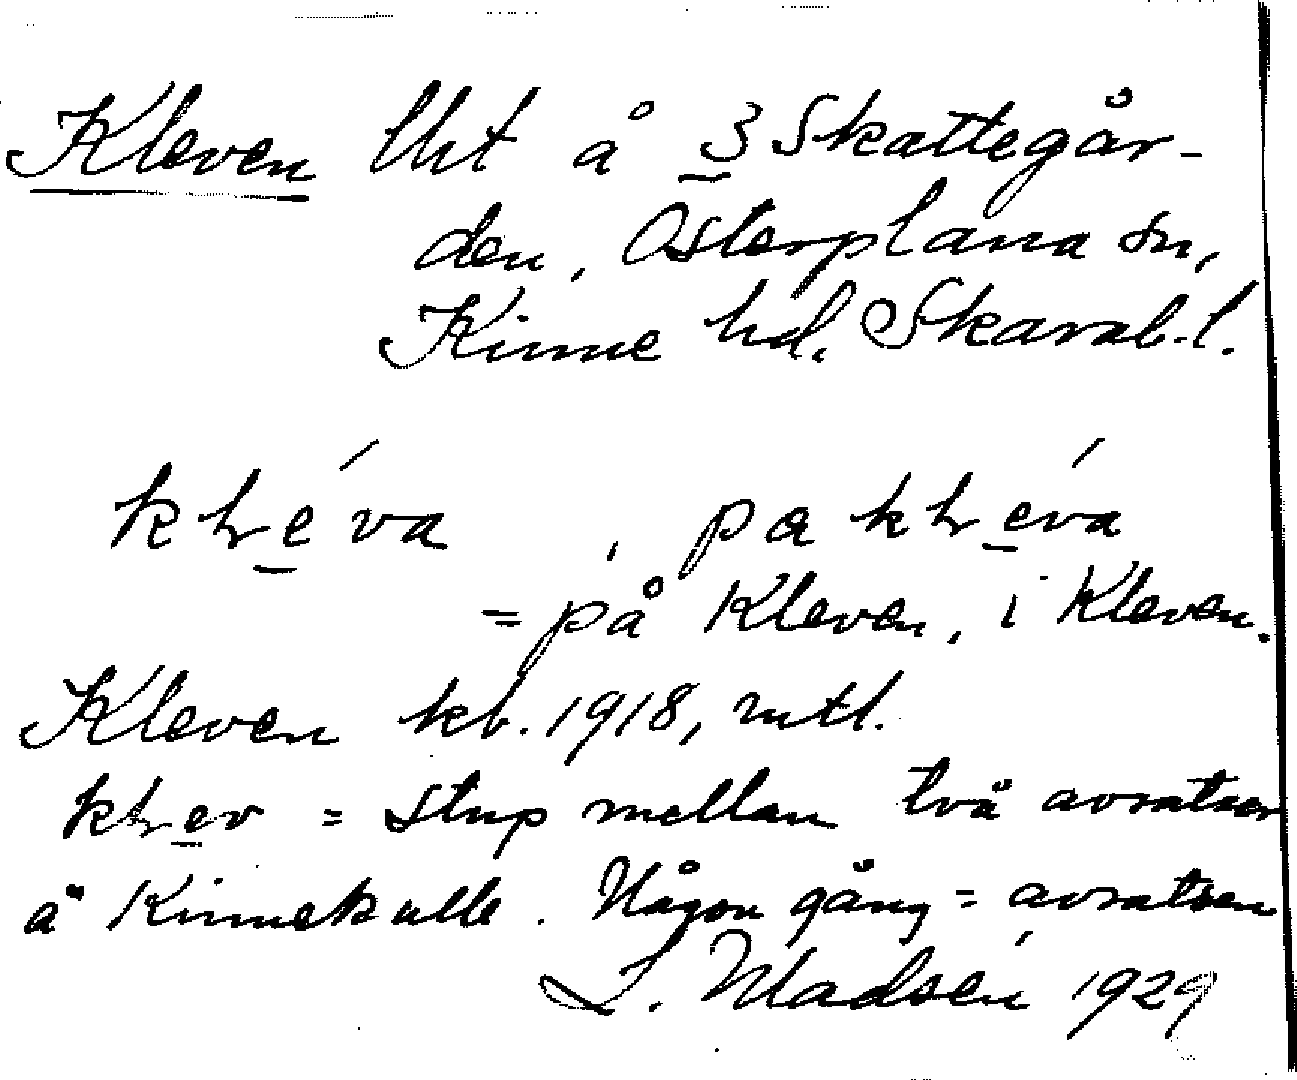 Kleven lht å 3 Skattegår-
den, Österplana sn,
Kinne hd. Skarab.l.
khréva, pa khréva
= på Kleven, i Kleven.
Kleven kb. 1918, mtl.
khrev = stup mellan två avsatser
å Kinnekulle. Någon gång = avsatsen
L. Madsén 1929